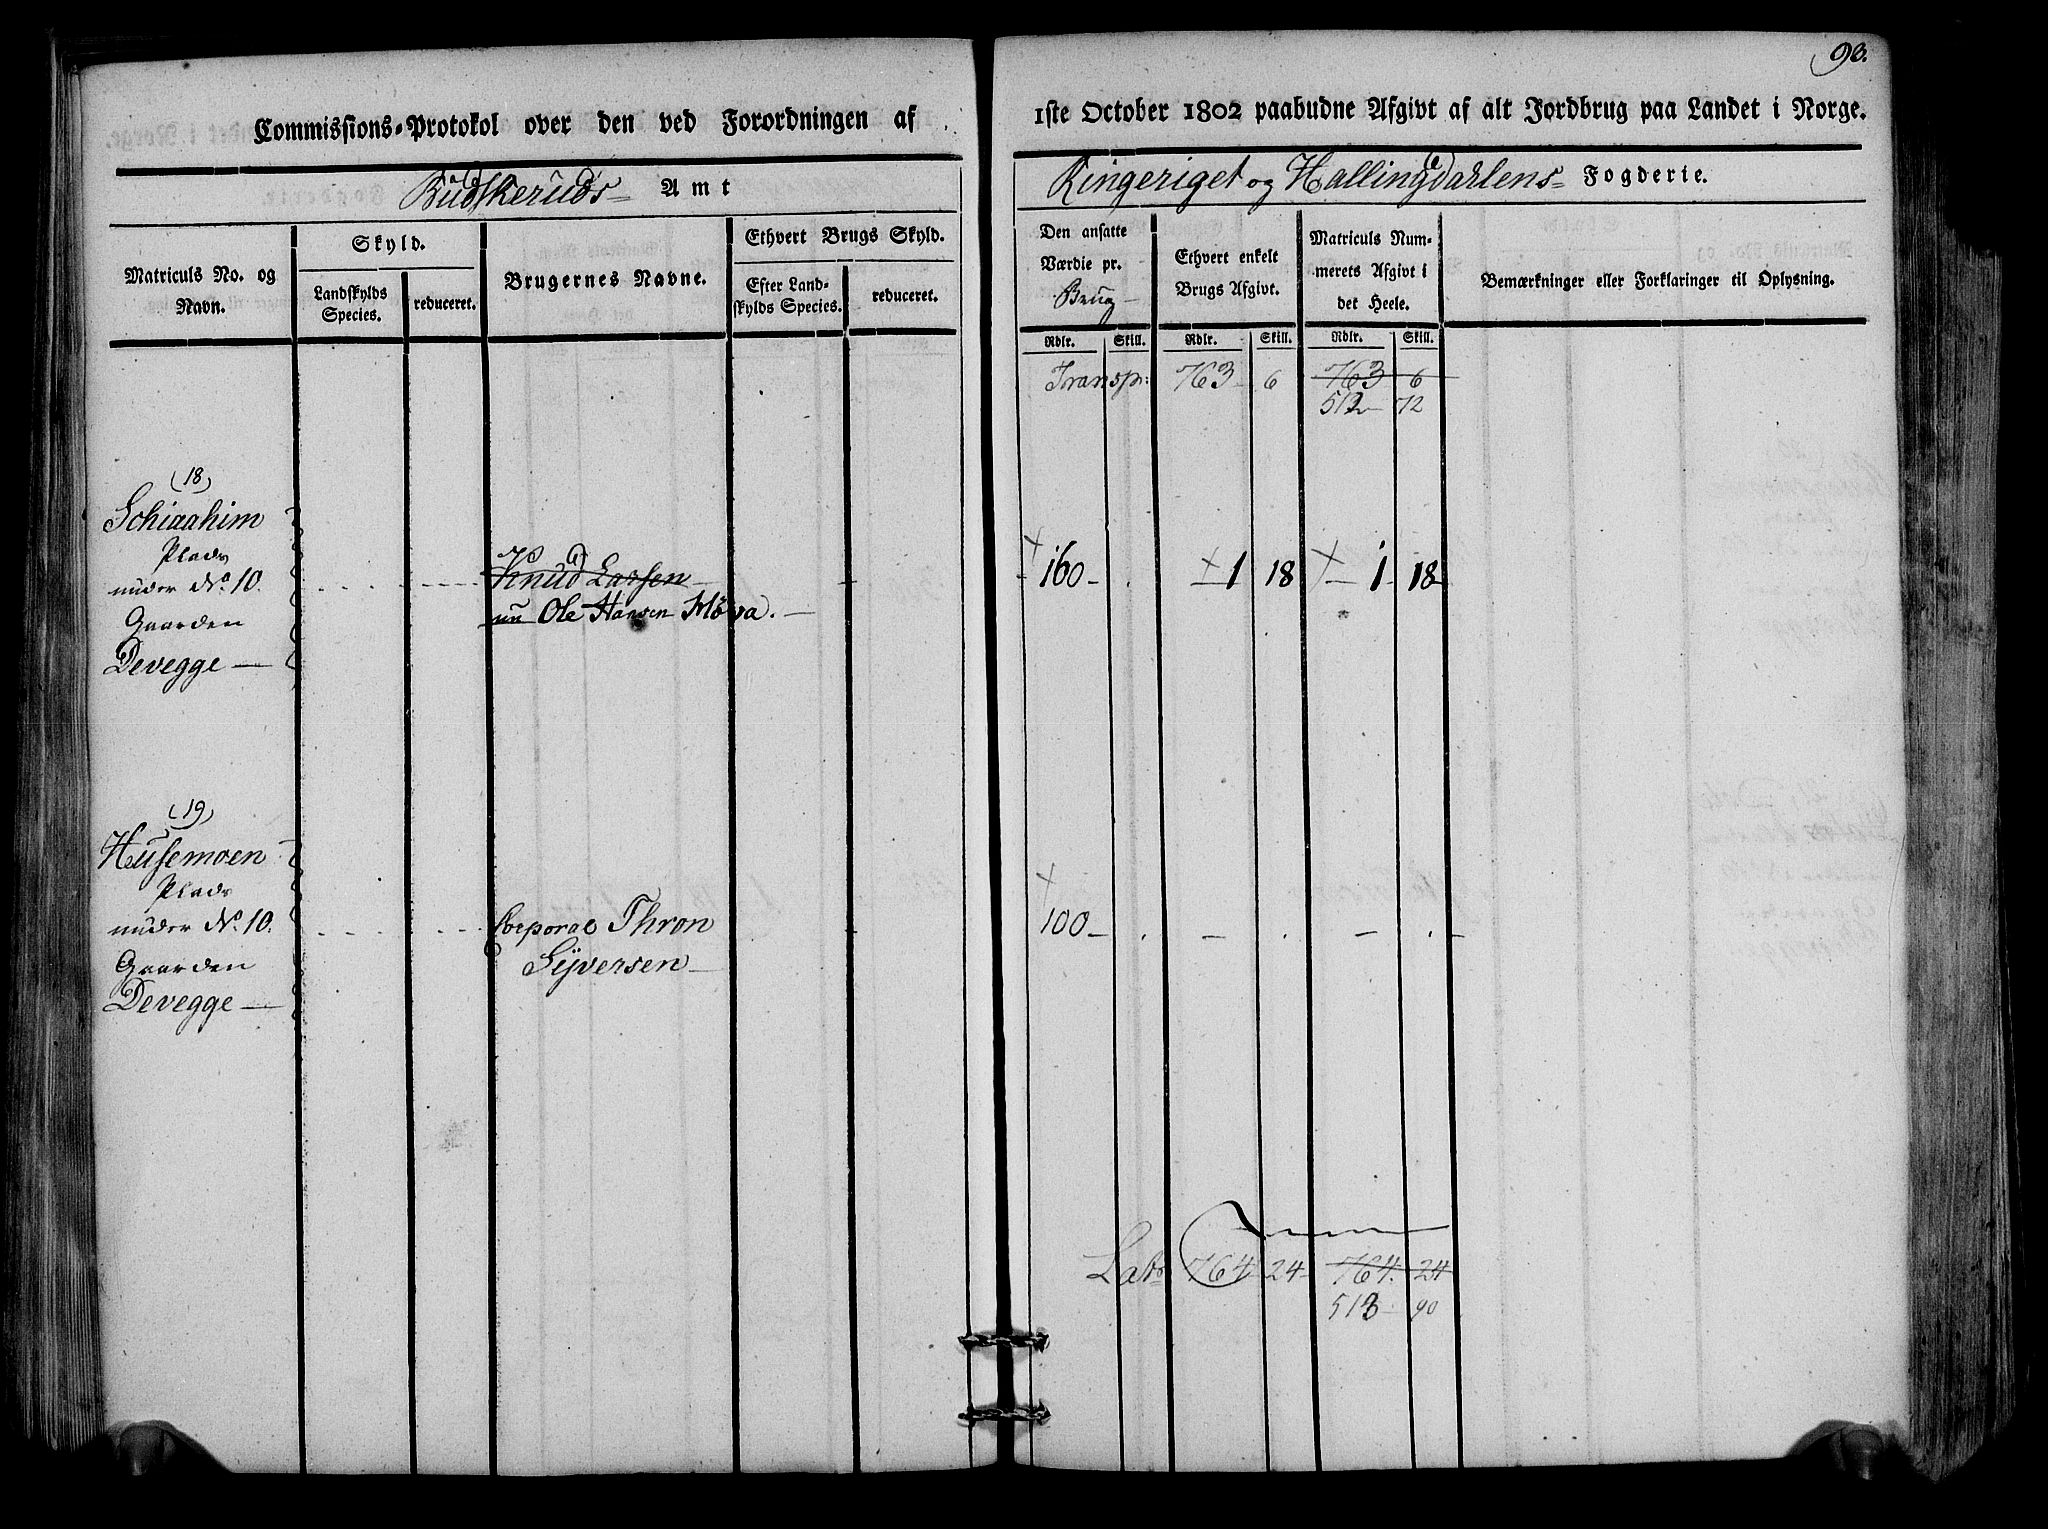 93.
Commissions-Protokol over den ved Forordningen af 1ste October 1802 paabudne Afgivt af alt Jordbrug paa Landet i Norge.
Budskeruds Amt
Ringeriget og Hallingdarlens Fogderie.
Matriculs No. og Navn.
Skyld.
Landskylds Species.
reduceret.
Brugernes Navne.
Ethvert Brugs Skyld.
Efter Landskylds Species.
reduceret.
Den ansatte Værdie pr. Brug
Ethvert enkelt Brugs Afgivt.
Matriculs Nummerets Afgivt i det Heele.
Bemærkninger eller Forklaringer til Oplysning.
Rdlr. Skill. Rdlr. Skill. Rdlr. Skill.
Transp: 763 6 763 6
512 72
(18)
Schiaahim
Plads
under No. 10.
Gaarden
Devegge
Knud Larsen
nu Ole Hansen Moya.
160 1 18 1 18
(19)
Husemoen
Plads
under No. 10.
Gaarden
Devegge
Corporal Thron
Syversen
100
Lats 764 24 764. 24
513 90